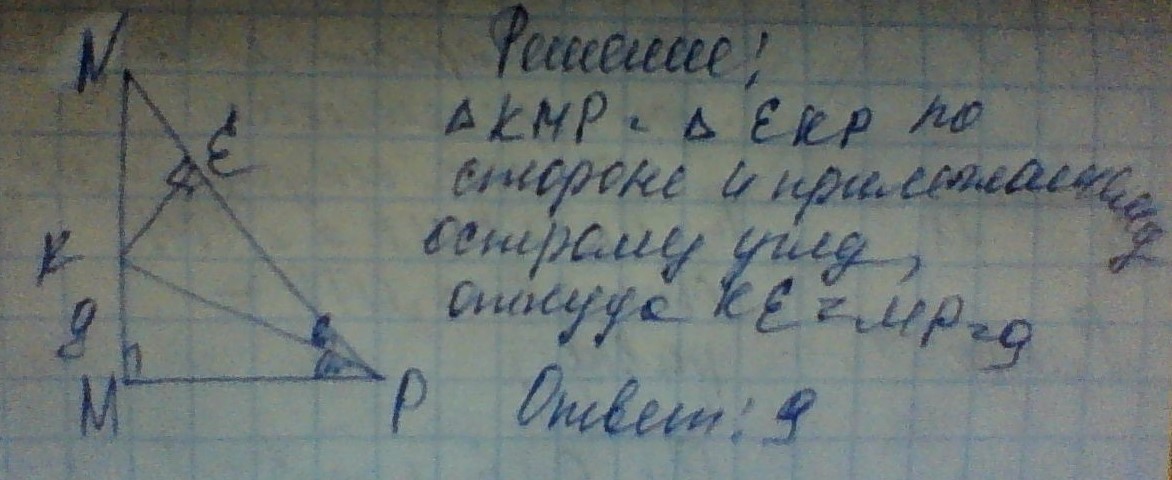 N
Решение!
Δ KMP = Δ EKP по
E
стороне и прилежащему
K
острому углу,
откуда KE = MP = 9
9
M
P
Ответ: 9